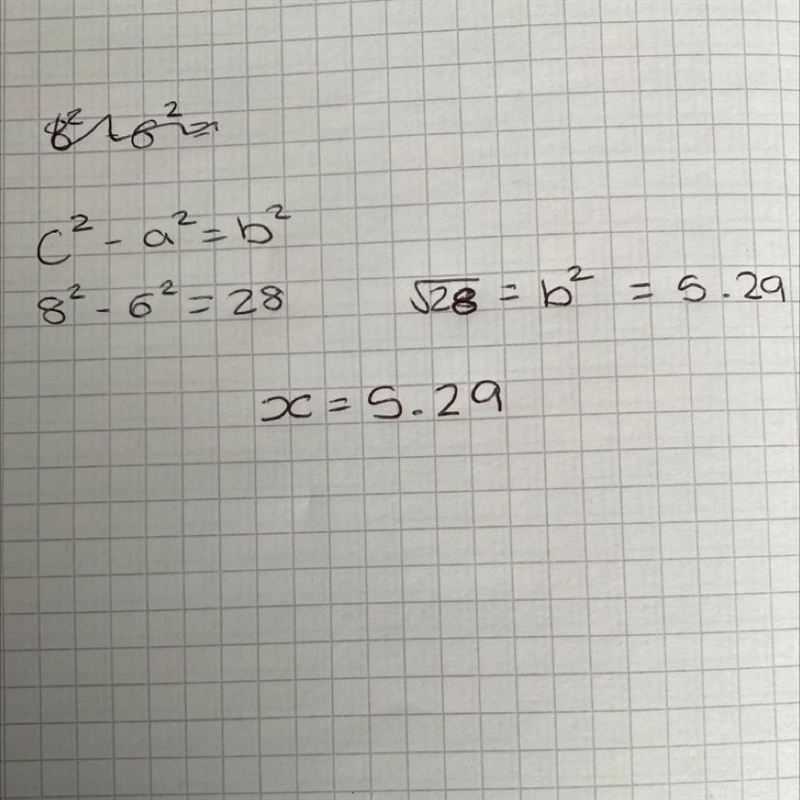 8² + 6² =
c² - a² = b²
8² - 6² = 28
√28 = b² = 5.29
x = 5.29